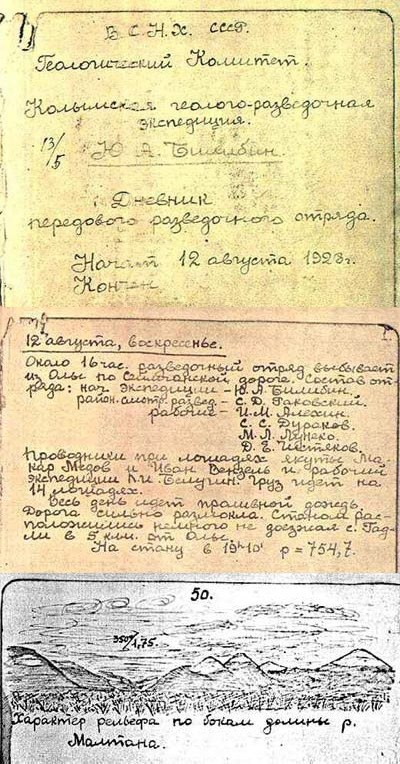 В. С. Н. Х. СССР.
Геологический Комитет.
Колымская геолого-разведочная
экспедиция.
13/5
Ю А. Билибин.
Дневник
передового разведочного отряда.
Начат 12 августа 1928 г.
Кончен
12 августа, воскресенье.
Около 16 час. разведочный отряд выбывает
из Олы по Сеймчанской дороге. Состав от-
ряда: нач. экспедиции - Ю. А. Билибин.
район. смотр. развед. - С. Д. Раковский.
рабочие - И. М. Алехин.
С. С. Дураков.
М. Л. Лунеко.
Д. Е. Чистяков.
Проводники при лошадях якуты Ма-
кар Медов и Иван Вензель и рабочий
экспедиции П. И. Белугин. Груз идет на
14 лошадях.
Весь день идет проливной дождь.
Дорога сильно размокла. Станом рас-
положились немного не доезжая с. Гад-
ли в 5 клм. от Олы.
На стану в 19ч 10' p = 754,7.
50.
350/1,75.
Характер рельефа по бокам долины р.
Малтана.